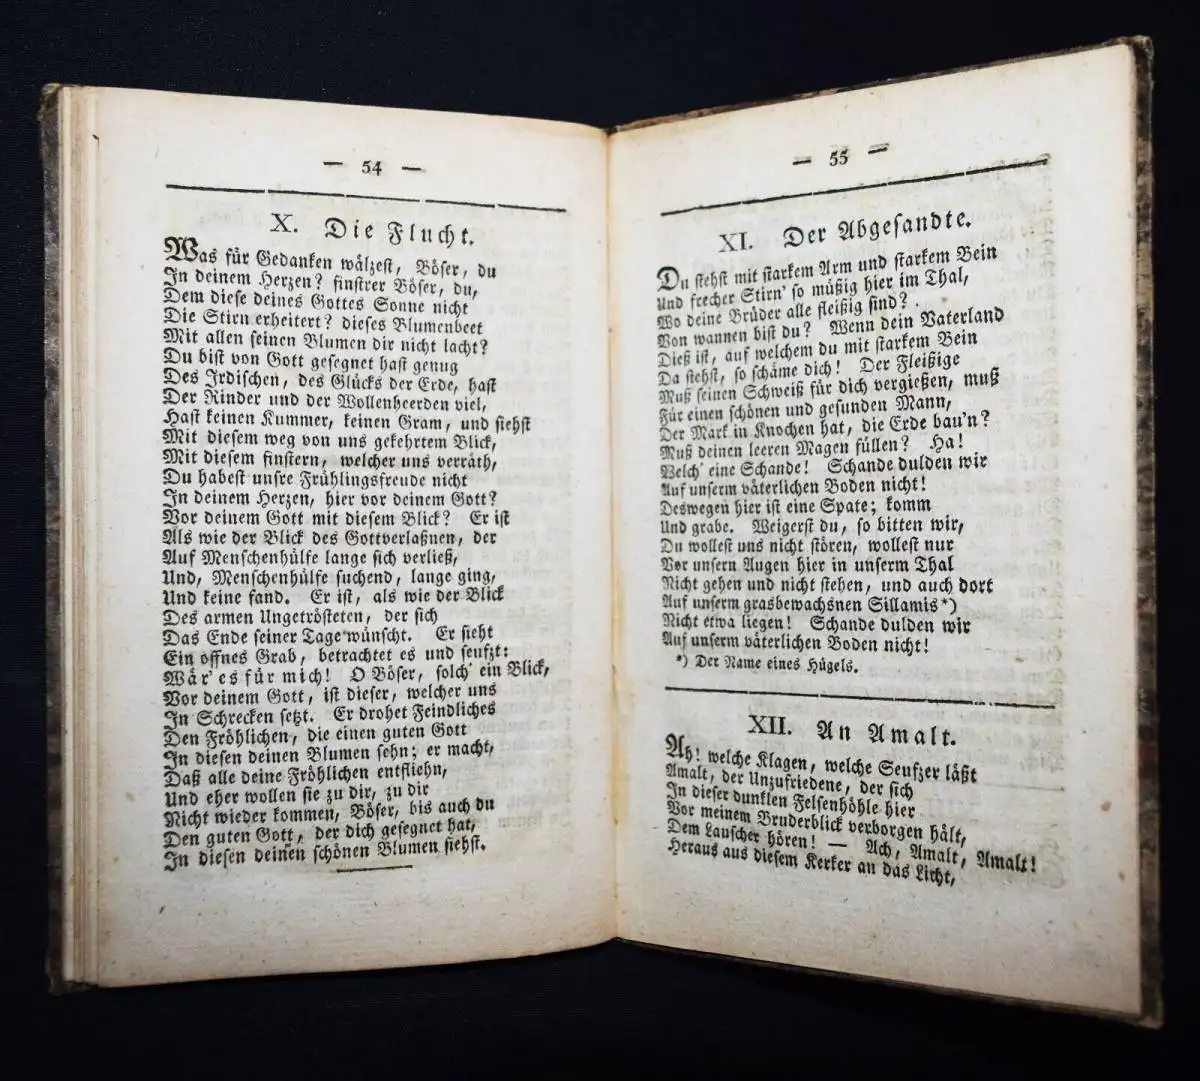 — 54 —
X. Die Flucht.
Was für Gedanken wälzest, Böser, du
In deinem Herzen? finstrer Böser, du,
Dem diese deines Gottes Sonne nicht
Die Stirn erheitert? dieses Blumenbeet
Mit allen seinen Blumen dir nicht lacht?
Du bist von Gott gesegnet hast genug
Des Irdischen, des Glücks der Erde, hast
Der Rinder und der Wollenheerden viel,
Hast keinen Kummer, keinen Gram, und siehst
Mit diesem weg von uns gekehrtem Blick,
Mit diesem finstern, welcher uns verräth,
Du habest unsre Frühlingsfreude nicht
In deinem Herzen, hier vor deinem Gott?
Vor deinem Gott mit diesem Blick? Er ist
Als wie der Blick des Gottverlaßnen, der
Auf Menschenhülfe lange sich verließ,
Und, Menschenhülfe suchend, lange ging,
Und keine fand. Er ist, als wie der Blick
Des armen Ungetrösteten, der sich
Das Ende seiner Tage wünscht. Er sieht
Ein offnes Grab, betrachtet es und seufzt:
Wär' es für mich! O Böser, solch' ein Blick,
Vor deinem Gott, ist dieser, welcher uns
In Schrecken setzt. Er drohet Feindliches
Den Fröhlichen, die einen guten Gott
In diesen deinen Blumen sehn; er macht,
Daß alle deine Fröhlichen entfliehn,
Und eher wollen sie zu dir, zu dir
Nicht wieder kommen, Böser, bis auch du
Den guten Gott, der dich gesegnet hat,
In diesen deinen schönen Blumen siehst.
— 55 —
XI. Der Abgesandte.
Du stehst mit starkem Arm und starkem Bein
Und frecher Stirn' so müßig hier im Thal,
Wo deine Brüder alle fleißig sind?
Von wannen bist du? Wenn dein Vaterland
Dieß ist, auf welchem du mit starkem Bein
Da stehst, so schäme dich! Der Fleißige
Muß seinen Schweiß für dich vergießen, muß
Für einen schönen und gesunden Mann,
Der Mark in Knochen hat, die Erde bau'n?
Muß deinen leeren Magen füllen? Ha!
Welch' eine Schande! Schande dulden wir
Auf unserm väterlichen Boden nicht!
Deswegen hier ist eine Spate; komm
Und grabe. Weigerst du, so bitten wir,
Du wollest uns nicht stören, wollest nur
Vor unsern Augen hier in unserm Thal
Nicht gehen und nicht stehen, und auch dort
Auf unserm grasbewachsnen Sillamis*)
Nicht etwa liegen! Schande dulden wir
Auf unserm väterlichen Boden nicht!
*) Der Name eines Hügels.
XII. An Amalt.
Ah! welche Klagen, welche Seufzer läßt
Amalt, der Unzufriedene, der sich
In dieser dunklen Felsenhöhle hier
Vor meinem Bruderblick verborgen hält,
Dem Lauscher hören! — Ach, Amalt, Amalt!
Heraus aus diesem Kerker an das Licht,